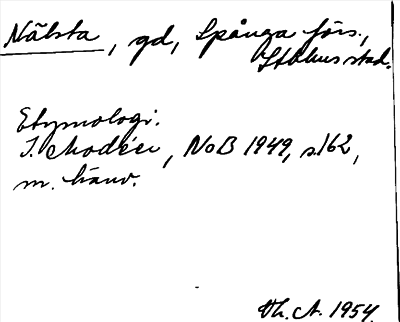 Nälsta, gd, Spånga förs.,
Sthlms stad.
Etymologi.
I. Modéer, NoB 1949, s.162,
m. hänv.
Vh. A. 1954.